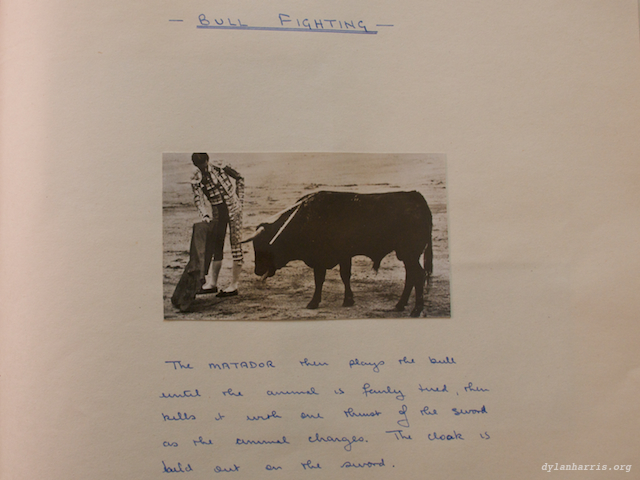 — BULL FIGHTING —
The MATADOR then plays the bull
until the animal is fairly tired, then
kills it with one thrust of the sword
as the animal charges. The cloak is
held out on the sword.
dylanharris.org